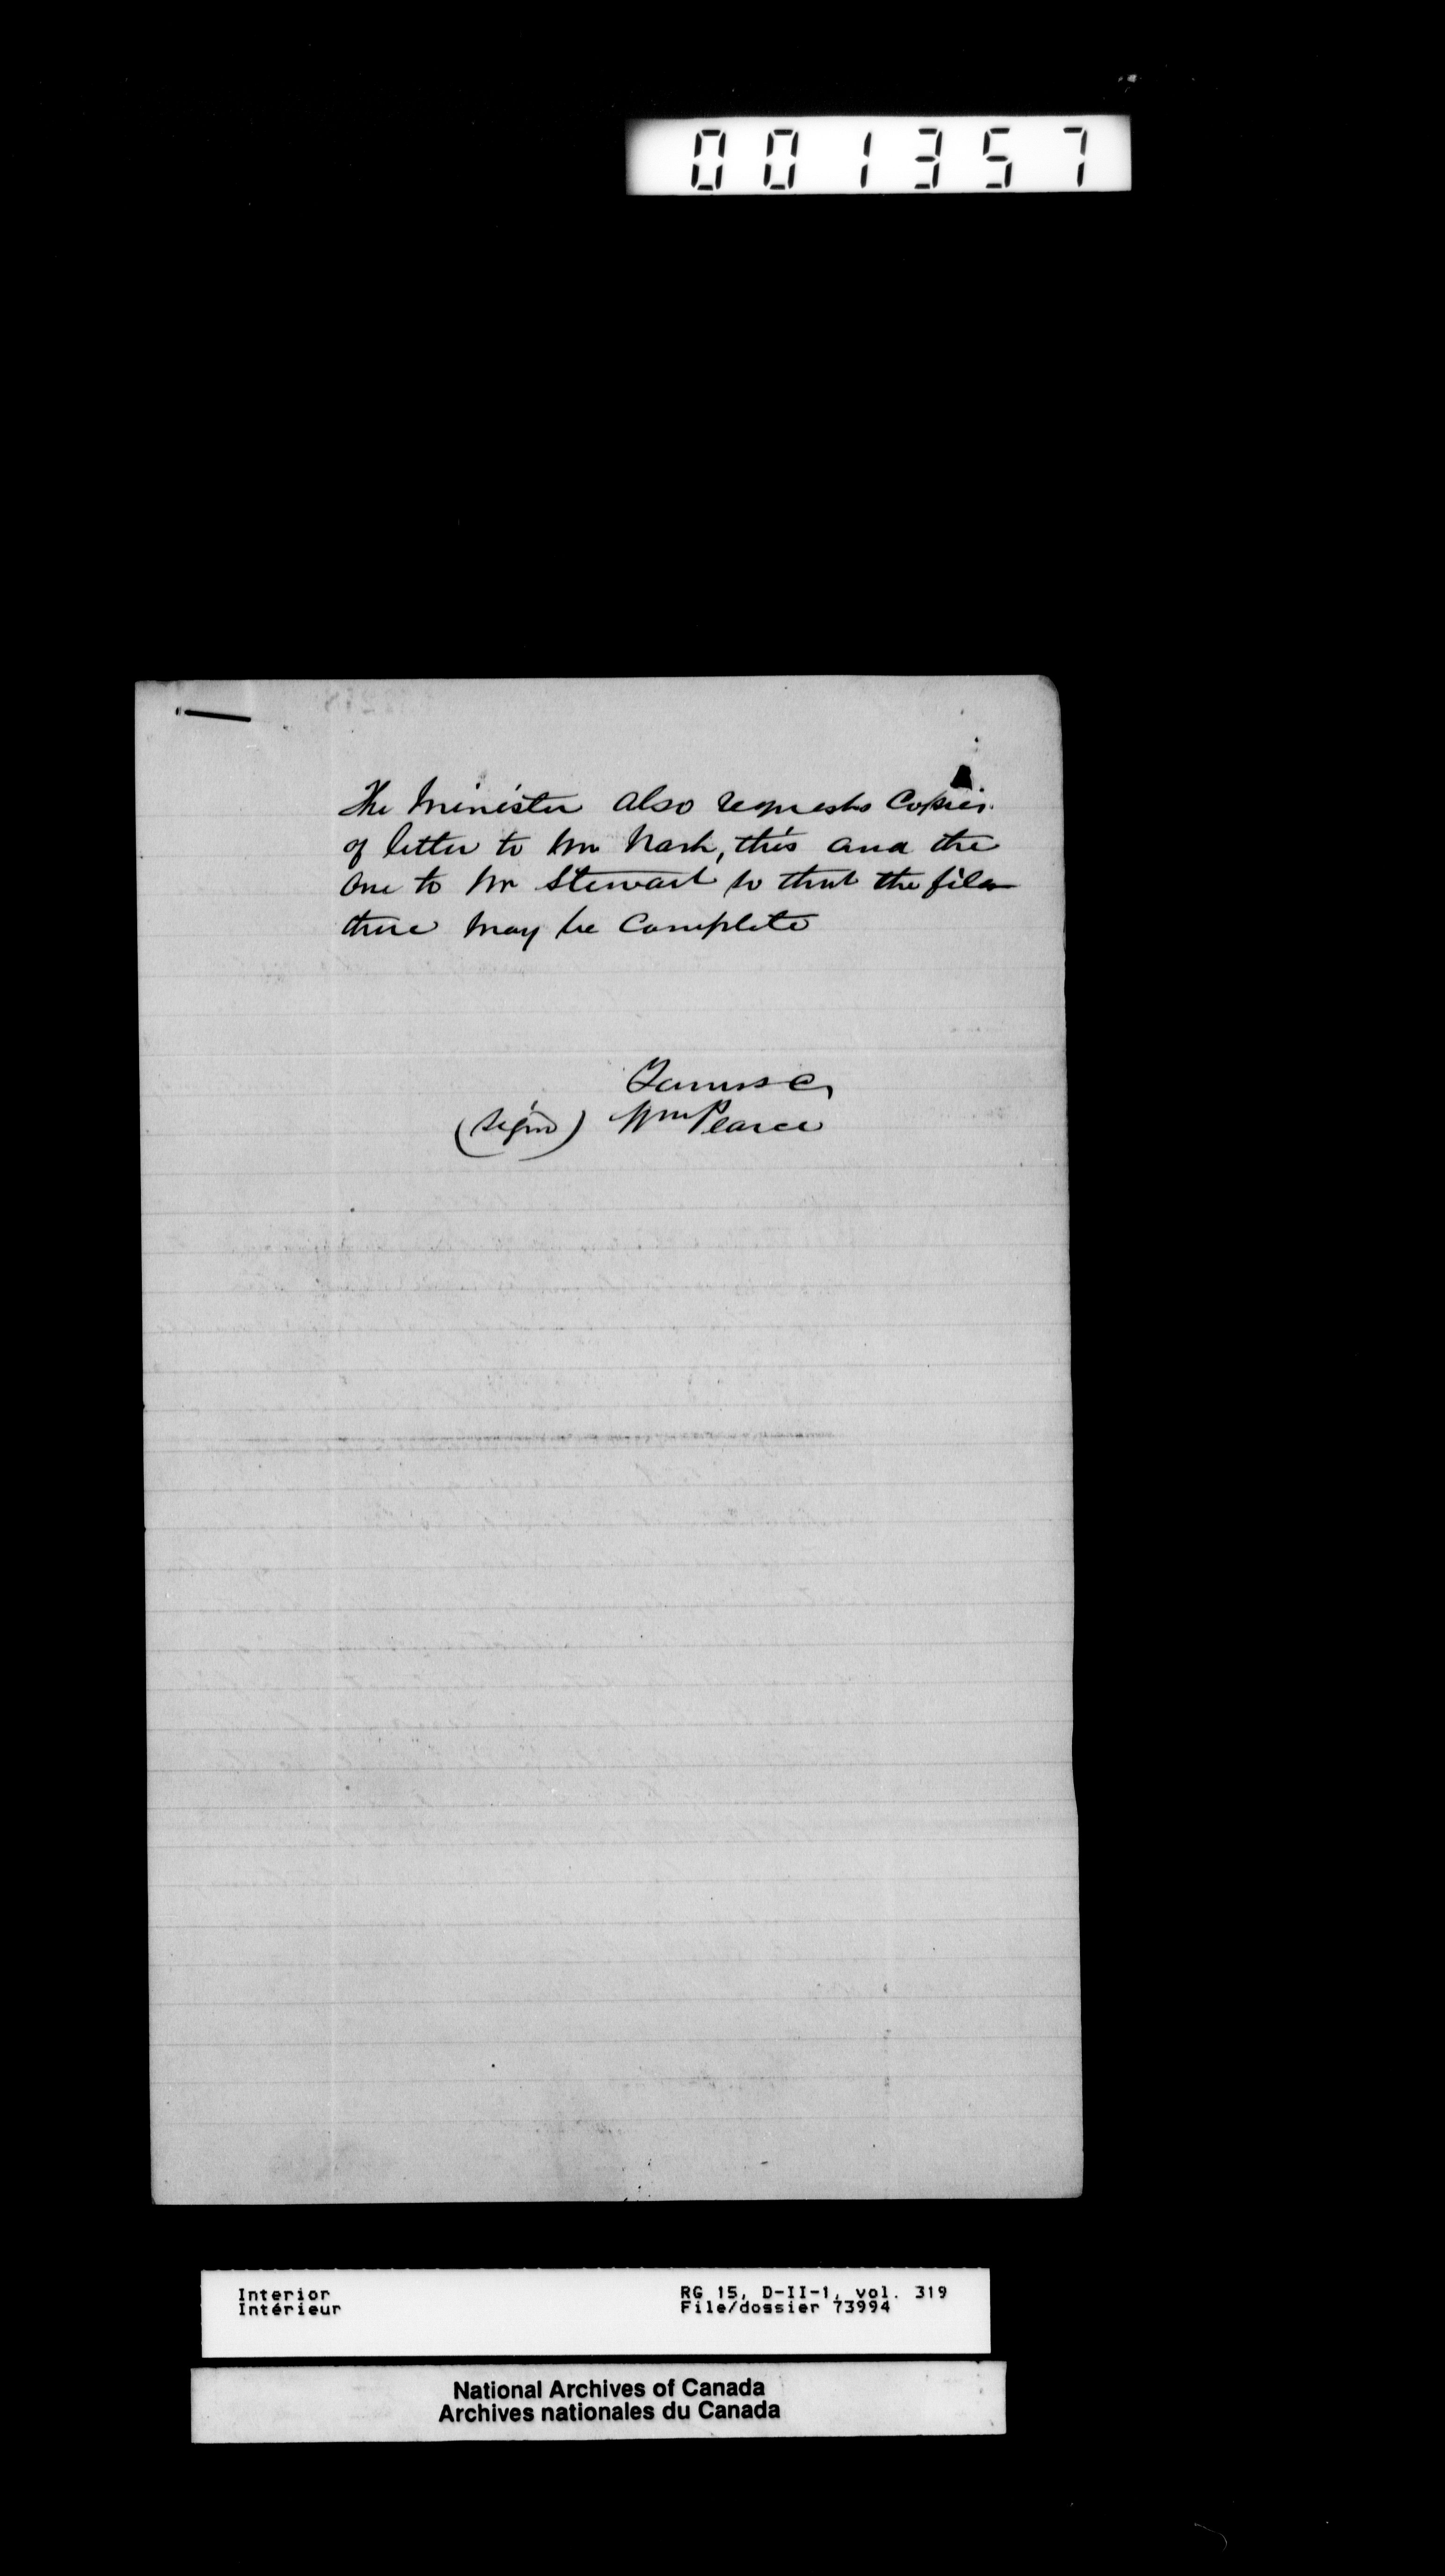 001357
The Minister also requests Copies
of letter to Mr Nash, this and the
one to Mr Stewart so that the files
there may be Complete
Yours &c,
(Signd) Wm Pearce
Interior
Intérieur
RG 15, D-II-1, vol. 319
File/dossier 73994
National Archives of Canada
Archives nationales du Canada